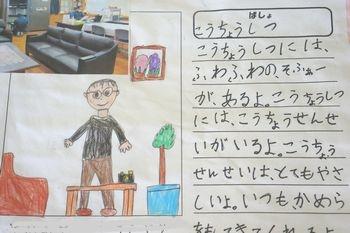 ばしょ
こうちょうしつ
こうちょうしつには、
ふわふわの、そふぁー
が、あるよ。こうちょうしつ
には、こうちょうせんせ
いがいるよ。こうちょう
せんせいは、とてもやさ
しいよ。いつも、かめら
をもってきてくれるよ